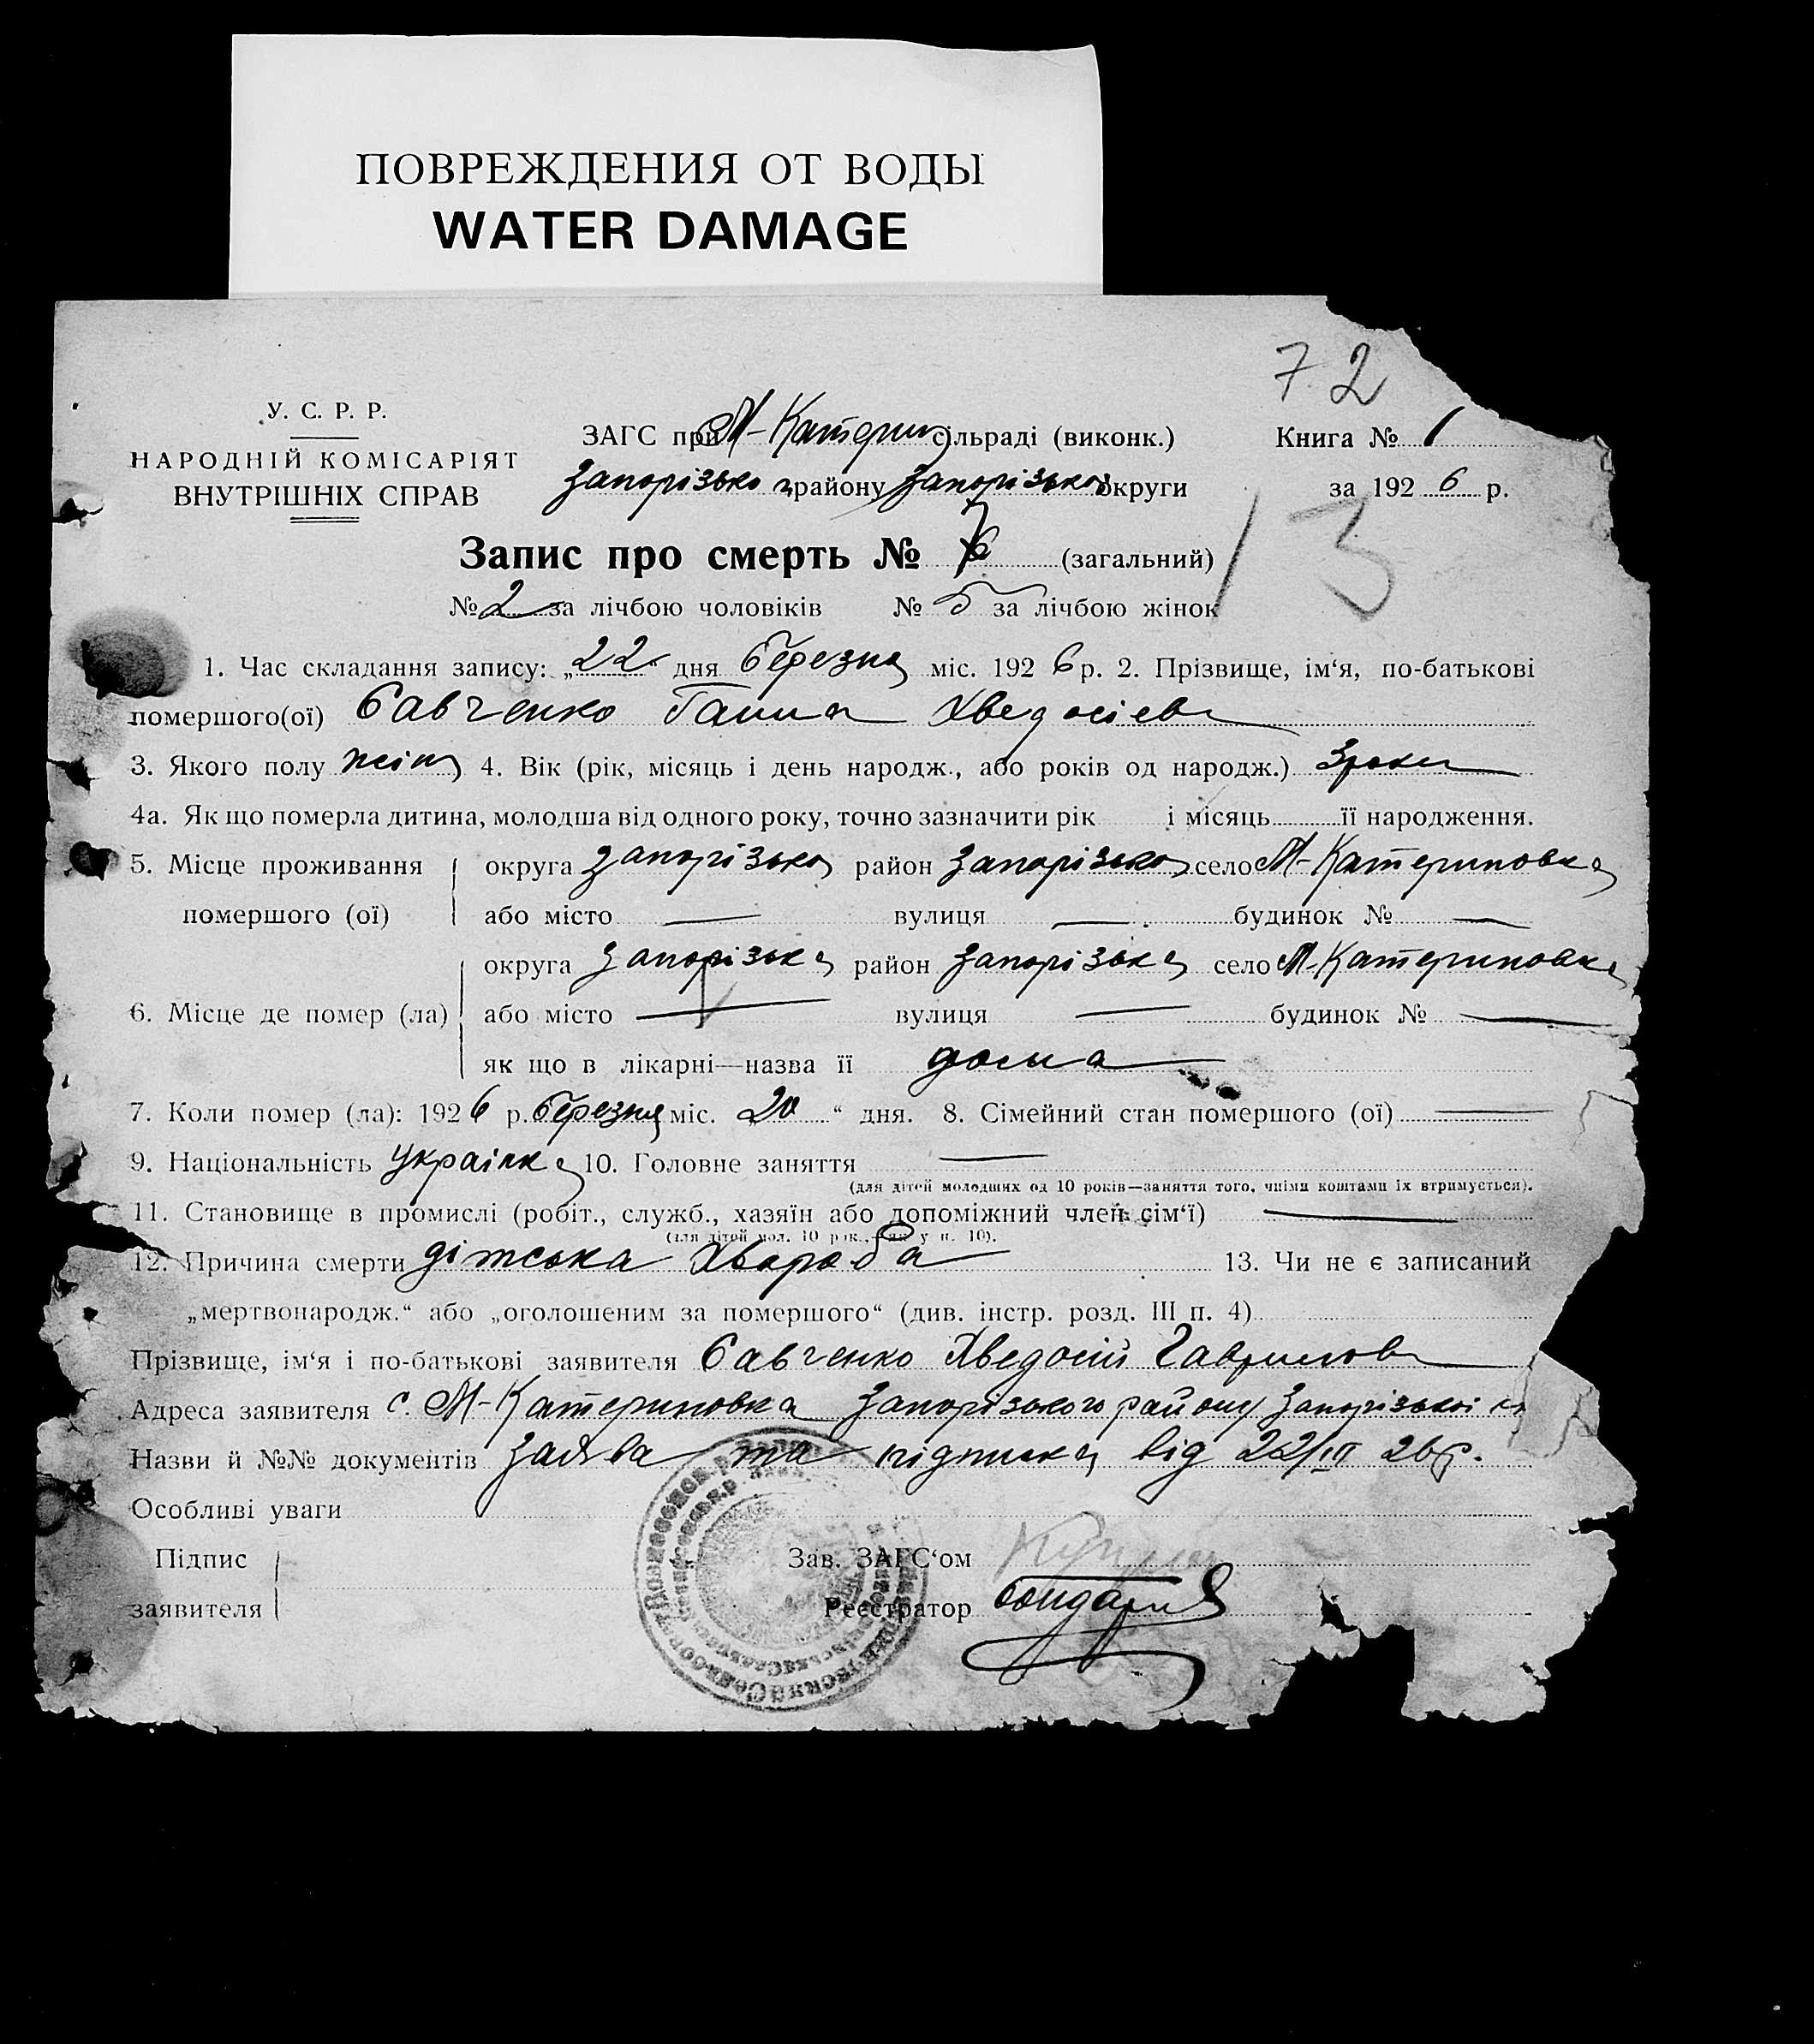 ПОВРЕЖДЕНИЯ ОТ ВОДЫ
WATER DAMAGE
72
У. С. Р. Р.
НАРОДНІЙ КОМІСАРІЯТ
ВНУТРІШНІХ СПРАВ
ЗАГС при М-Катерин сільраді (виконк.)
Запорізько району Запорізько округи
Книга № 1
за 1926 р.
13
Запис про смерть № (загальний)
№ 2 за лічбою чоловіків № 5 за лічбою жінок
1. Час складання запису: „22“ дня березня міс. 1926 р. 2. Прізвище, ім‘я, по-батькові
помершого(ої) Савченко Ганна Хведосієв
3. Якого полу жіноч 4. Вік (рік, місяць і день народж., або років од народж.) 3 роки
4а. Як що померла дитина, молодша від одного року, точно зазначити рік і місяць її народження.
5. Місце проживання округа Запорізька район Запорізько село М-Катериновка
помершого (ої) або місто — вулиця — будинок № —
округа Запорізька район Запорізька село М-Катериновка
6. Місце де помер (ла) або місто — вулиця — будинок № —
як що в лікарні—назва її дома
7. Коли помер (ла): 1926 р. березня міс. 20 “ дня. 8. Сімейний стан помершого (ої) —
9. Національність українка 10. Головне заняття —
(для дітей молодших од 10 років—заняття того, чиїми коштами їх втримується).
11. Становище в промислі (робіт., служб., хазяїн або допоміжний член сім‘ї) —
(для дітей мол. 10 рок., як у п. 10).
12. Причина смерти дітська хвороба 13. Чи не є записаний
„мертвонародж.“ або „оголошеним за помершого“ (див. інстр. розд. III п. 4)
Прізвище, ім‘я і по-батькові заявителя Савченко Хведосій Гаврилов
Адреса заявителя с. М-Катериновка Запорізького району Запорізької
Назви й №№ документів Заява та підписка від 22/III 26 р.
Особливі уваги
Підпис
заявителя
Зав. ЗАГС‘ом
Реєстратор